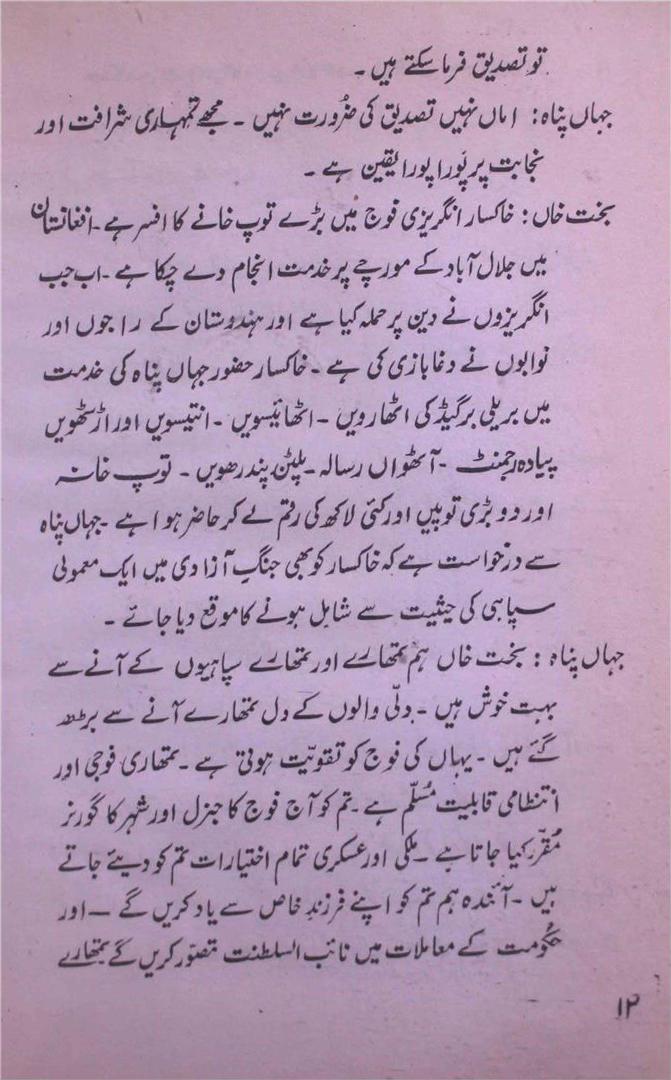 تو تصدیق فرما سکتے ہیں ۔
جہاں پناہ : اماں نہیں تصدیق کی ضُرورت نہیں ۔ مجھے تمہاری شرافت اور
نجابت پر پُورا پورا یقین ہے ۔
بخت خاں : خاکسار انگریزی فوج میں بڑے توپ خانے کا افسر ہے ۔ افغانستان
میں جلال آباد کے مورچے پر خدمت انجام دے چکا ہے ۔ اب جب
انگریزوں نے دین پر حملہ کیا ہے اور ہندوستان کے راجوں اور
نوابوں نے دغا بازی کی ہے ۔ خاکسار حضور جہاں پناہ کی خدمت
میں بریلی برگیڈ کی اٹھارویں ۔ اٹھائیسویں ۔ انتیسویں اور اڑسٹھویں
پیادہ رجمنٹ ۔ آٹھواں رسالہ ۔ پلٹن پندرھویں ۔ توپ خانہ
اور دو بڑی توپیں اور کئی لاکھ کی رقم لے کر حاضر ہوا ہے ۔ جہاں پناہ
سے درخواست ہے کہ خاکسار کو بھی جنگِ آزادی میں ایک معمولی
سپاہی کی حیثیت سے شامل ہونے کا موقع دیا جائے ۔
جہاں پناہ : بخت خاں ہم تمھارے اور تمھارے سپاہیوں کے آنے سے
بہت خوش ہیں ۔ دلّی والوں کے دل تمھارے آنے سے بڑھ
گئے ہیں ۔ یہاں کی فوج کو تقویّت ہوئی ہے ۔ تمھاری فوجی اور
انتظامی قابلیت مُسلّم ہے ۔ تم کو آج فوج کا جنرل اور شہر کا گورنر
مُقرّر کیا جاتا ہے ۔ ملکی اور عسکری تمام اختیارات تم کو دیئے جاتے
ہیں ۔ آئندہ ہم تم کو اپنے فرزندِ خاص سے یاد کریں گے — اور
حکُومت کے معاملات میں نائب السلطنت تصوّر کریں گے تمھارے
۱۲